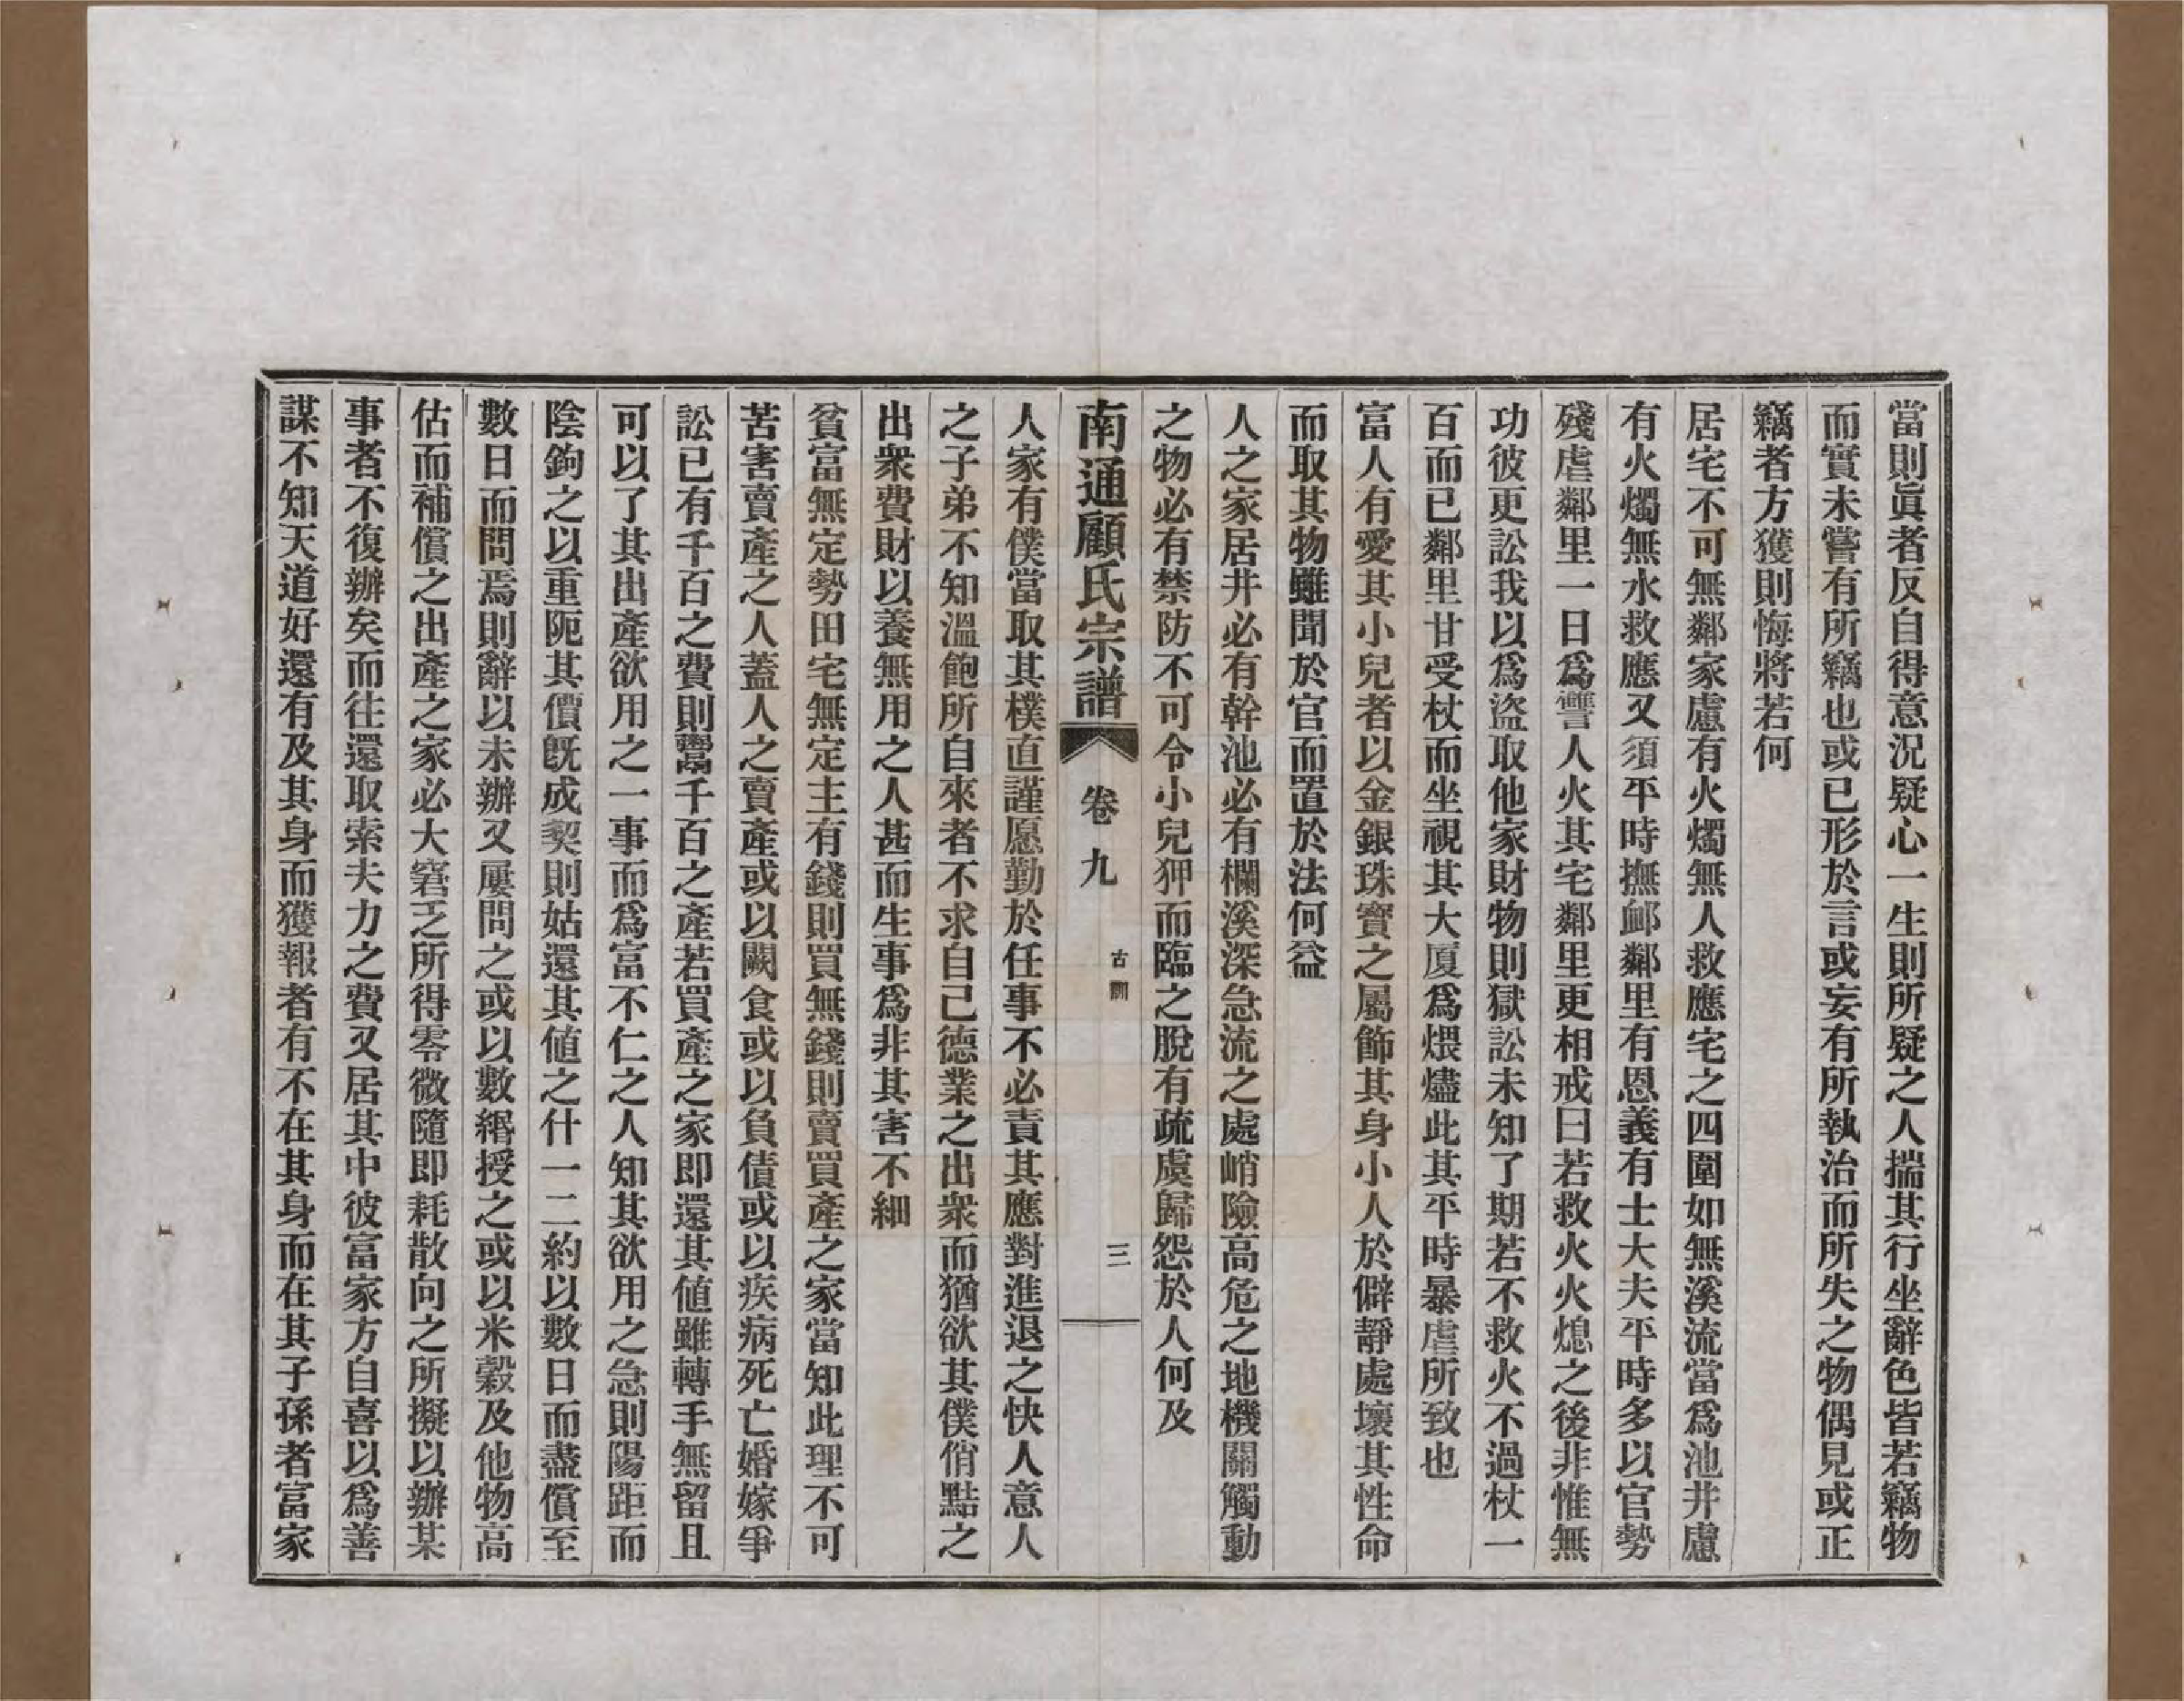 當則眞者反自得意況疑心一生則所疑之人揣其行坐辭色皆若竊物
而實未嘗有所竊也或已形於言或妄有所執治而所失之物偶見或正
竊者方獲則悔將若何
居宅不可無鄰家慮有火燭無人救應宅之四圍如無溪流當爲池井慮
有火燭無水救應又須平時撫卹鄰里有恩義有士大夫平時多以官勢
殘虐鄰里一日爲讐人火其宅鄰里更相戒曰若救火火熄之後非惟無
功彼更訟我以爲盜取他家財物則獄訟未知了期若不救火不過杖一
百而已鄰里甘受杖而坐視其大厦爲煨燼此其平時暴虐所致也
富人有愛其小兒者以金銀珠寶之屬飾其身小人於僻靜處壞其性命
而取其物雖聞於官而置於法何益
人之家居井必有幹池必有欄溪深急流之處峭險高危之地機關觸動
之物必有禁防不可令小兒狎而臨之脫有疏虞歸怨於人何及
南通顧氏宗譜
卷九
古
三
人家有僕當取其樸直謹愿勤於任事不必責其應對進退之快人意人
之子弟不知溫飽所自來者不求自己德業之出衆而猶欲其僕俏黠之
出衆費財以養無用之人甚而生事爲非其害不細
貧富無定勢田宅無定主有錢則買無錢則賣買產之家當知此理不可
苦害賣產之人蓋人之賣產或以闕食或以負債或以疾病死亡婚嫁爭
訟已有千百之費則鬻千百之產若買產之家即還其值雖轉手無留且
可以了其出產欲用之一事而爲富不仁之人知其欲用之急則陽距而
陰鉤之以重阨其價旣成契則姑還其值之什一二約以數日而盡償至
數日而問焉則辭以未辦又屢問之或以數緡授之或以米穀及他物高
估而補償之出產之家必大窘乏所得零微隨即耗散向之所擬以辦某
事者不復辦矣而往還取索夫力之費又居其中彼富家方自喜以爲善
謀不知天道好還有及其身而獲報者有不在其身而在其子孫者富家